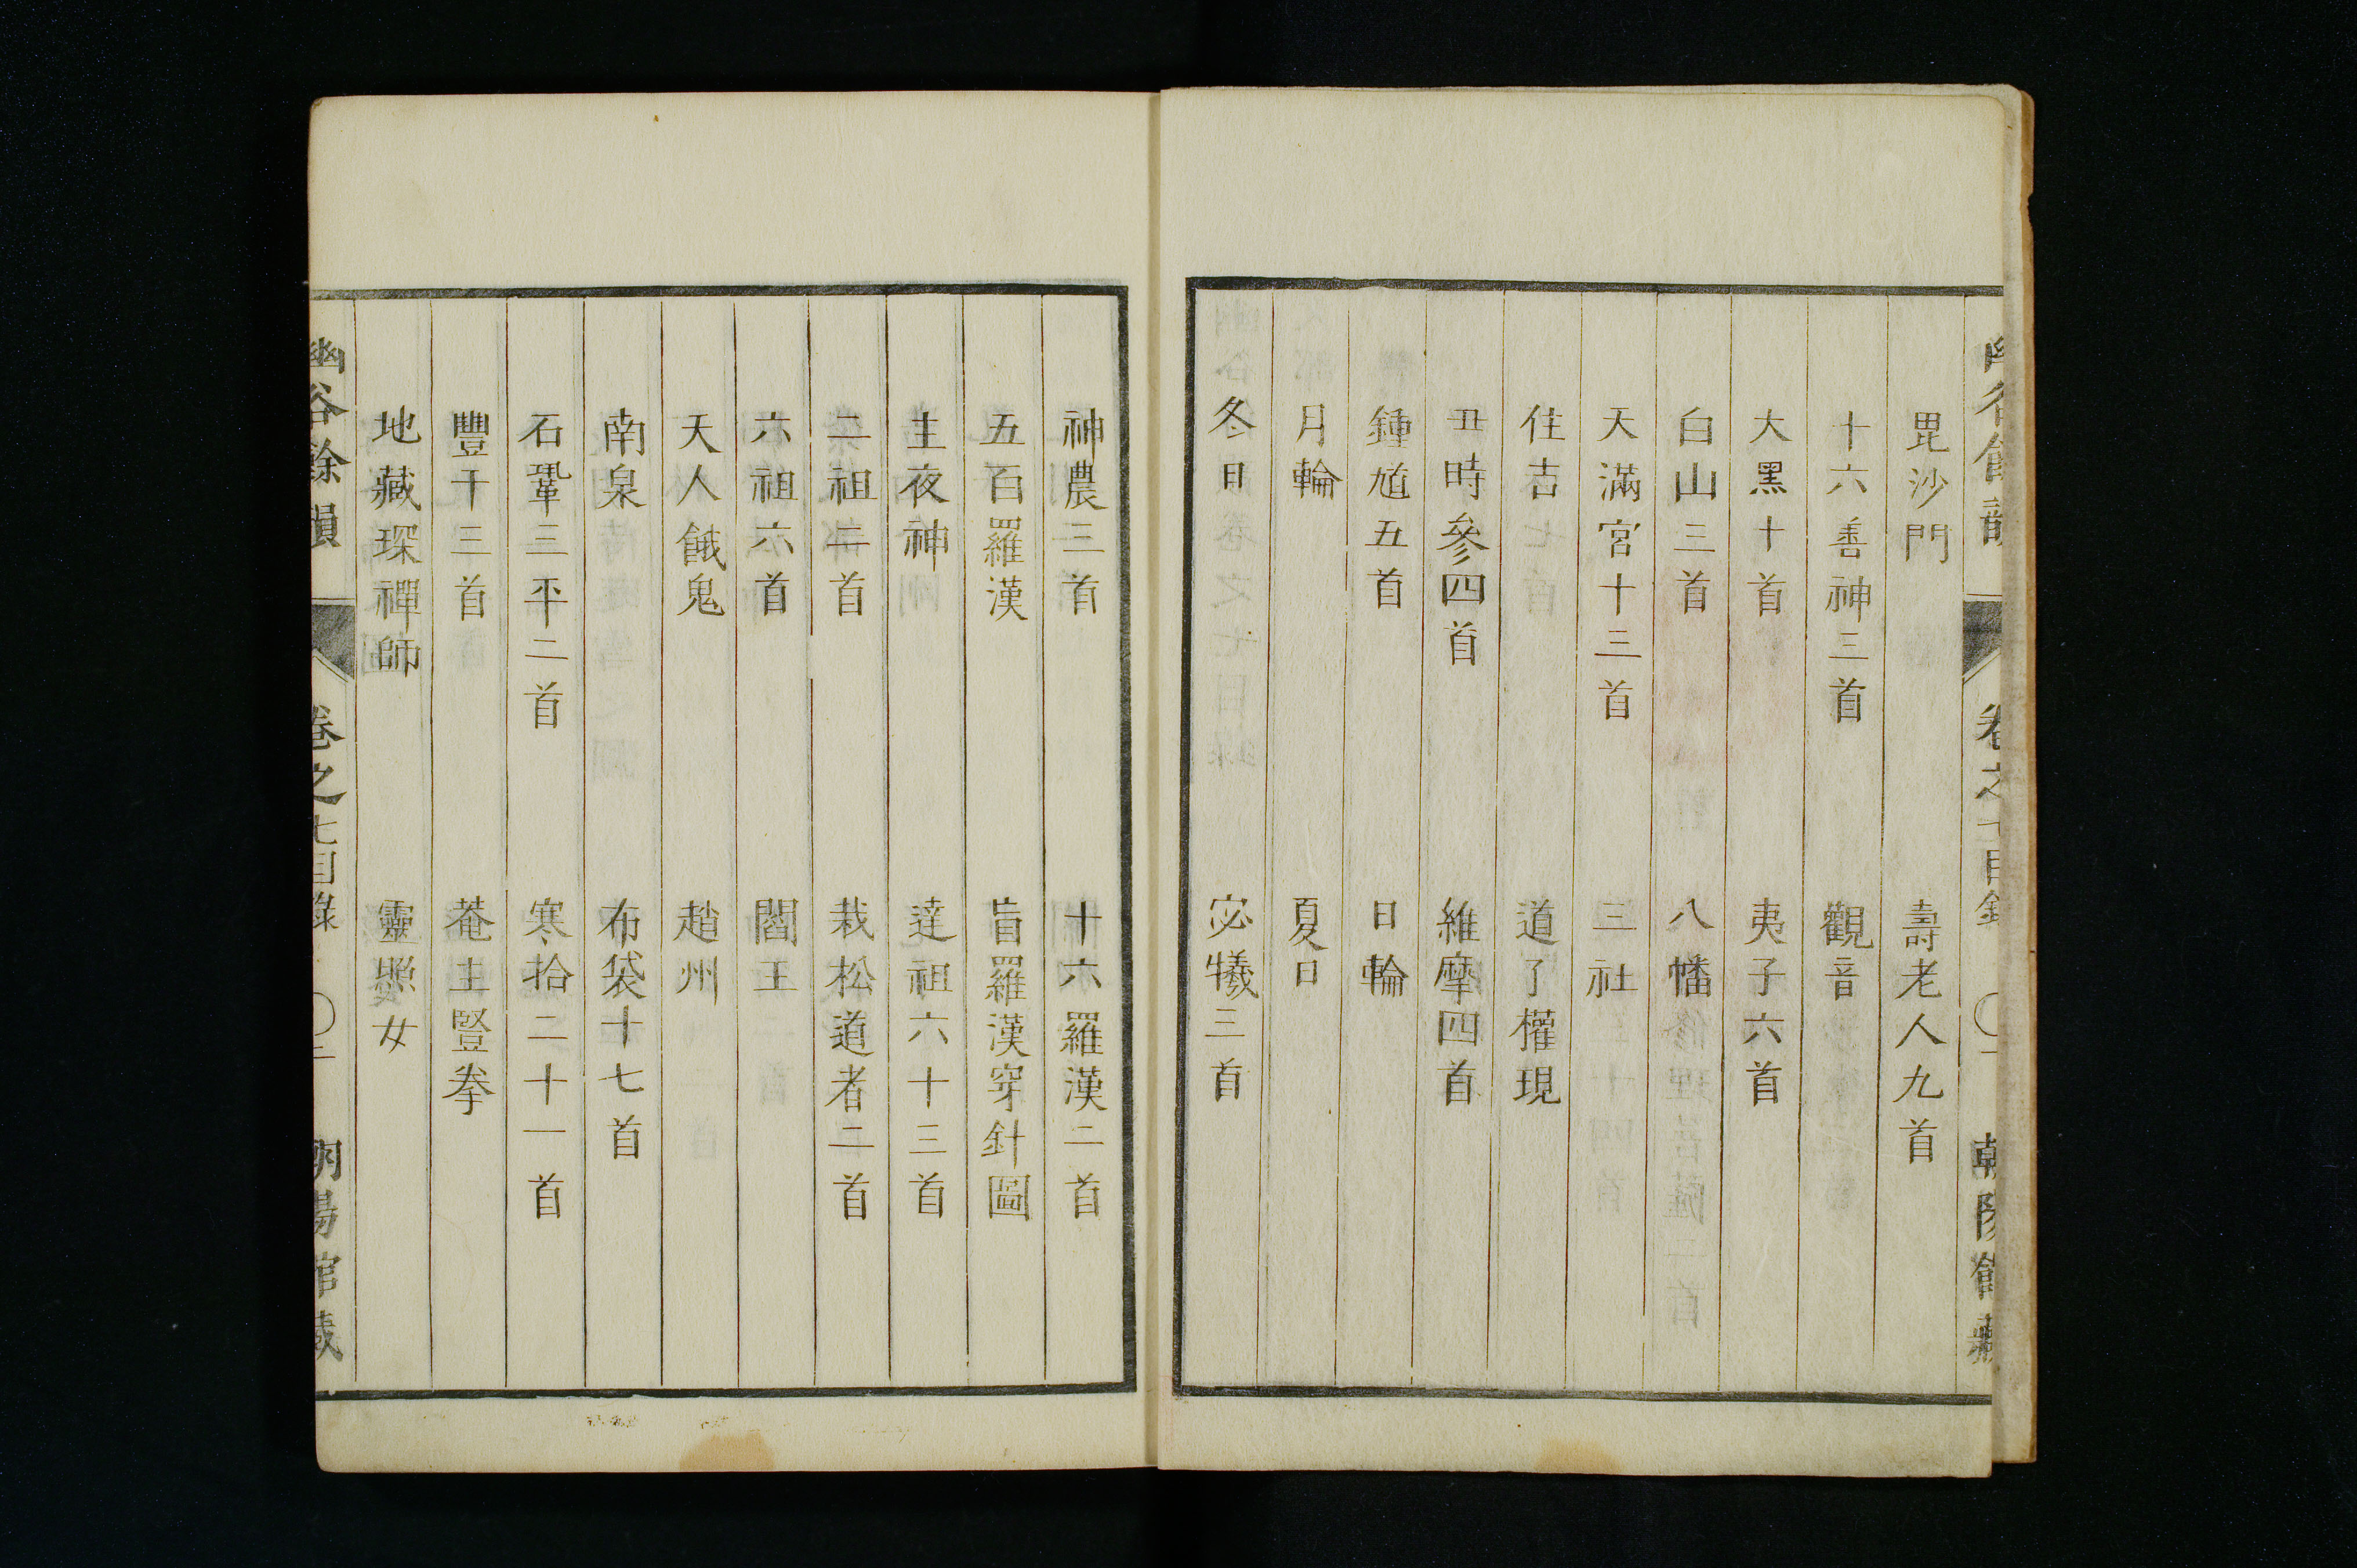 毘沙門　壽老人九首
十六善神三首　觀音
大黑十首　夷子六首
白山三首　八幡
天滿宮十三首　三社
住吉　道了權現
丑時參四首　維摩四首
鍾馗五首　日輪
月輪　夏日
冬日　宓犧三首
神農三首　十六羅漢二首
五百羅漢　盲羅漢穿針圖
主夜神　達祖六十三首
二祖二首　栽松道者二首
六祖六首　閻王
天人餓鬼　趙州
南泉　布袋十七首
石鞏三平二首　寒拾二十一首
豐干三首　菴主豎拳
地藏琛禪師　靈照女
幽谷餘韻　卷之七目錄　〇二　朝陽館藏